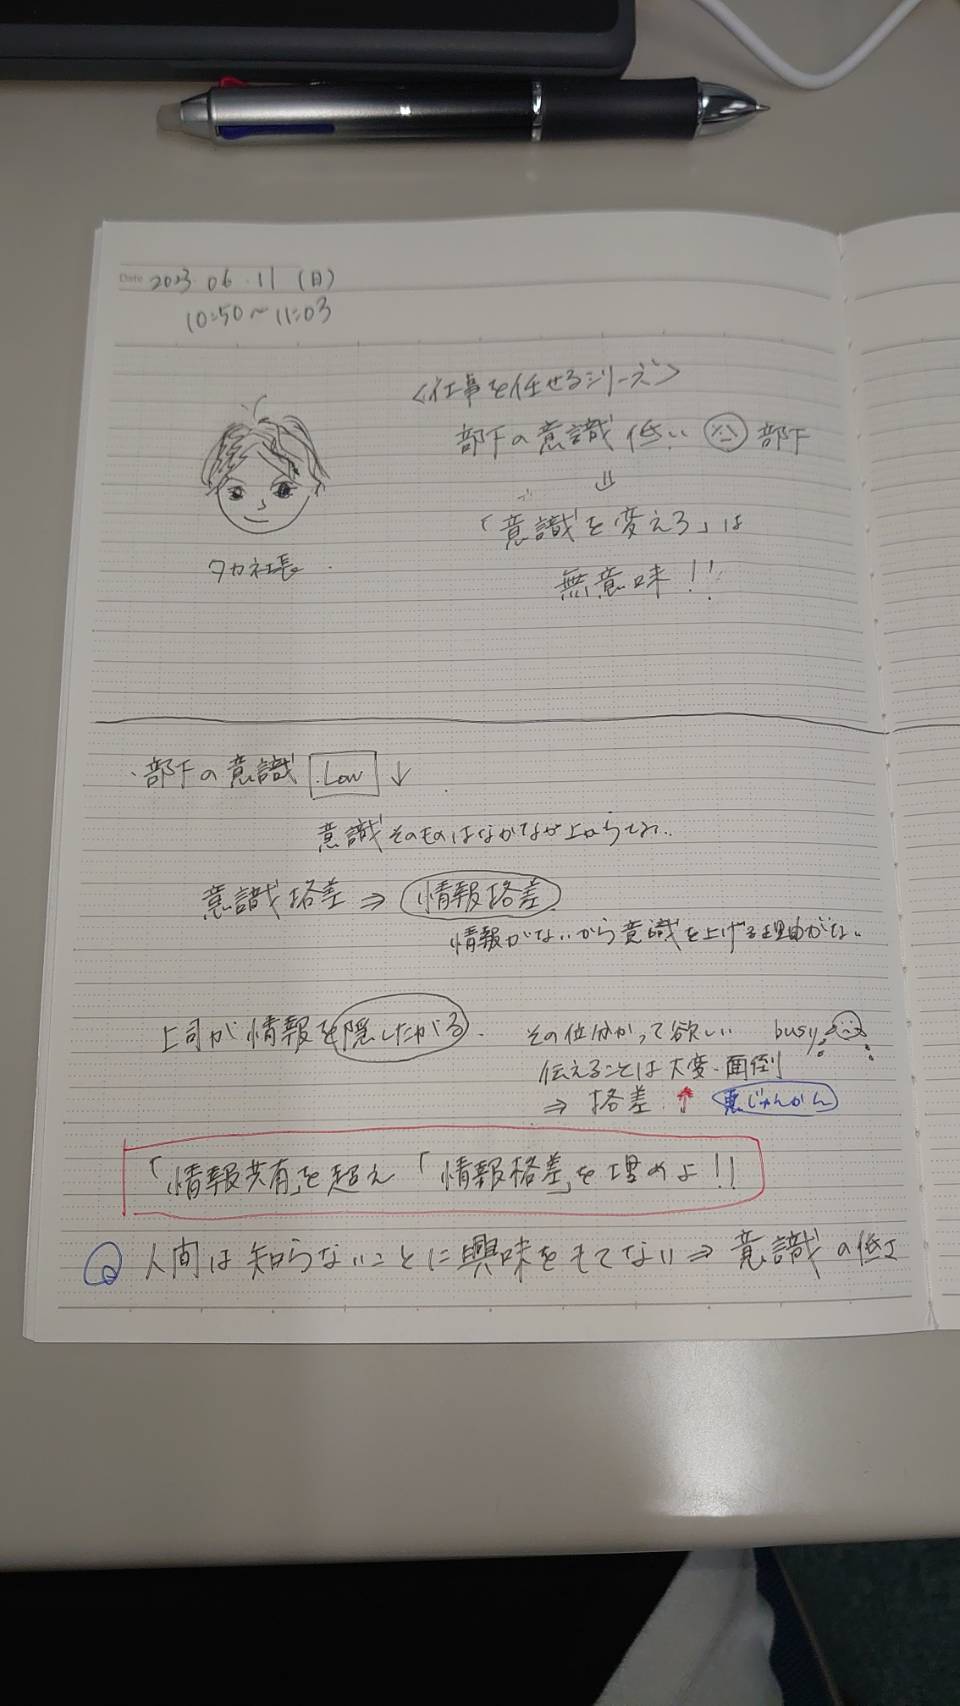 Date 2023.06.11(日)
10:50~11:03
<仕事を任せるシリーズ>
部下の意識低い 部下
⇓
「意識を変えろ」は
無意味!!
タカ社長
・部下の意識 Low ↓
意識そのものはなかなか上がらない
意識格差 ⇒ 情報格差
情報がないから意識を上げる理由がない
上司が情報を隠したがる.
その位分かって欲しい busy
伝えることは大変・面倒
⇒ 格差 ↑ 悪じゅんかん
「情報共有」を超え「情報格差」を埋めよ!!
人間は知らないことに興味をもてない ⇒ 意識の低下